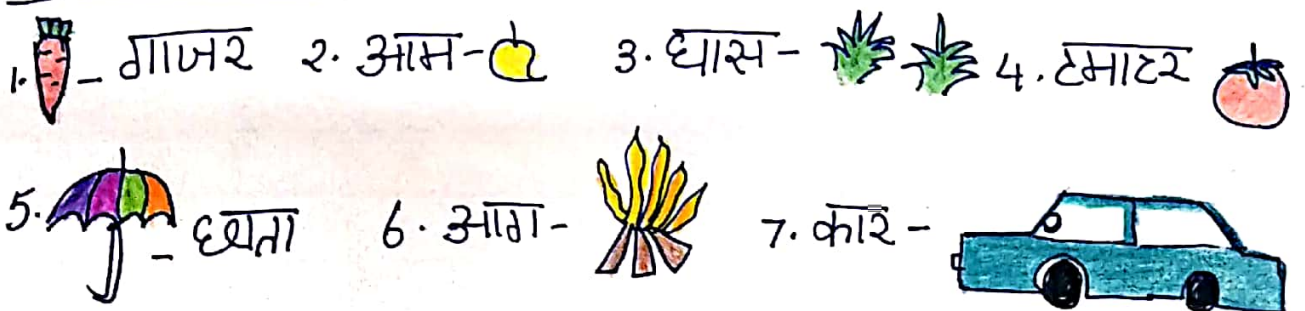 1. - गाजर 2. आम - 3. घास - 4. टमाटर
5. - छाता 6. आग - 7. कार -